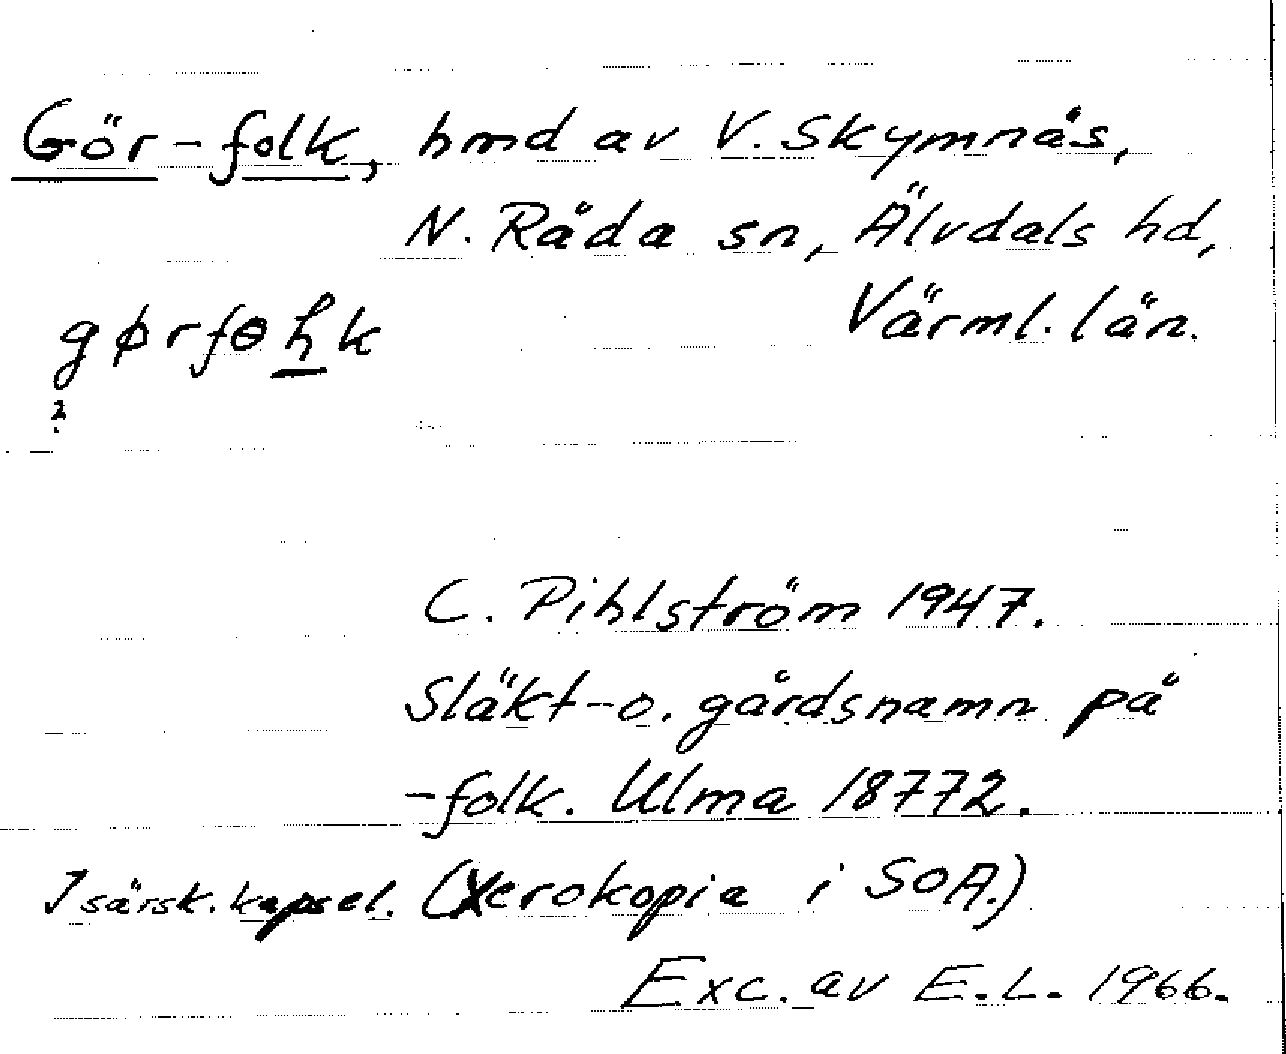 Gör-folk, hmd av V. Skymnäs,
N. Råda sn, Älvdals hd,
Värml. län.
C. Pihlström 1947.
Släkt- o. gårdsnamn på
-folk. Ulma 18772.
I särsk. kapsel. (Xerokopia i SOA.)
Exc. av E.L. 1966.